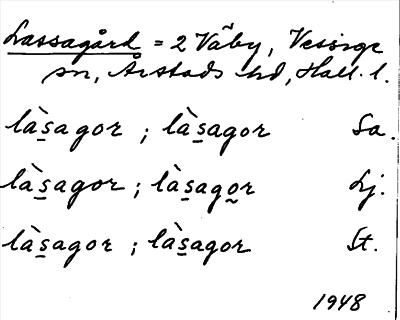 Lassagård = 2 Väby, Vessige
sn, Årstads hd, Hall. l.
làs̱agor ; làs̱agor Sa.
làs̱agor ; làs̱ago̰r Lj.
làs̱agor ; làs̱agor St.
1948